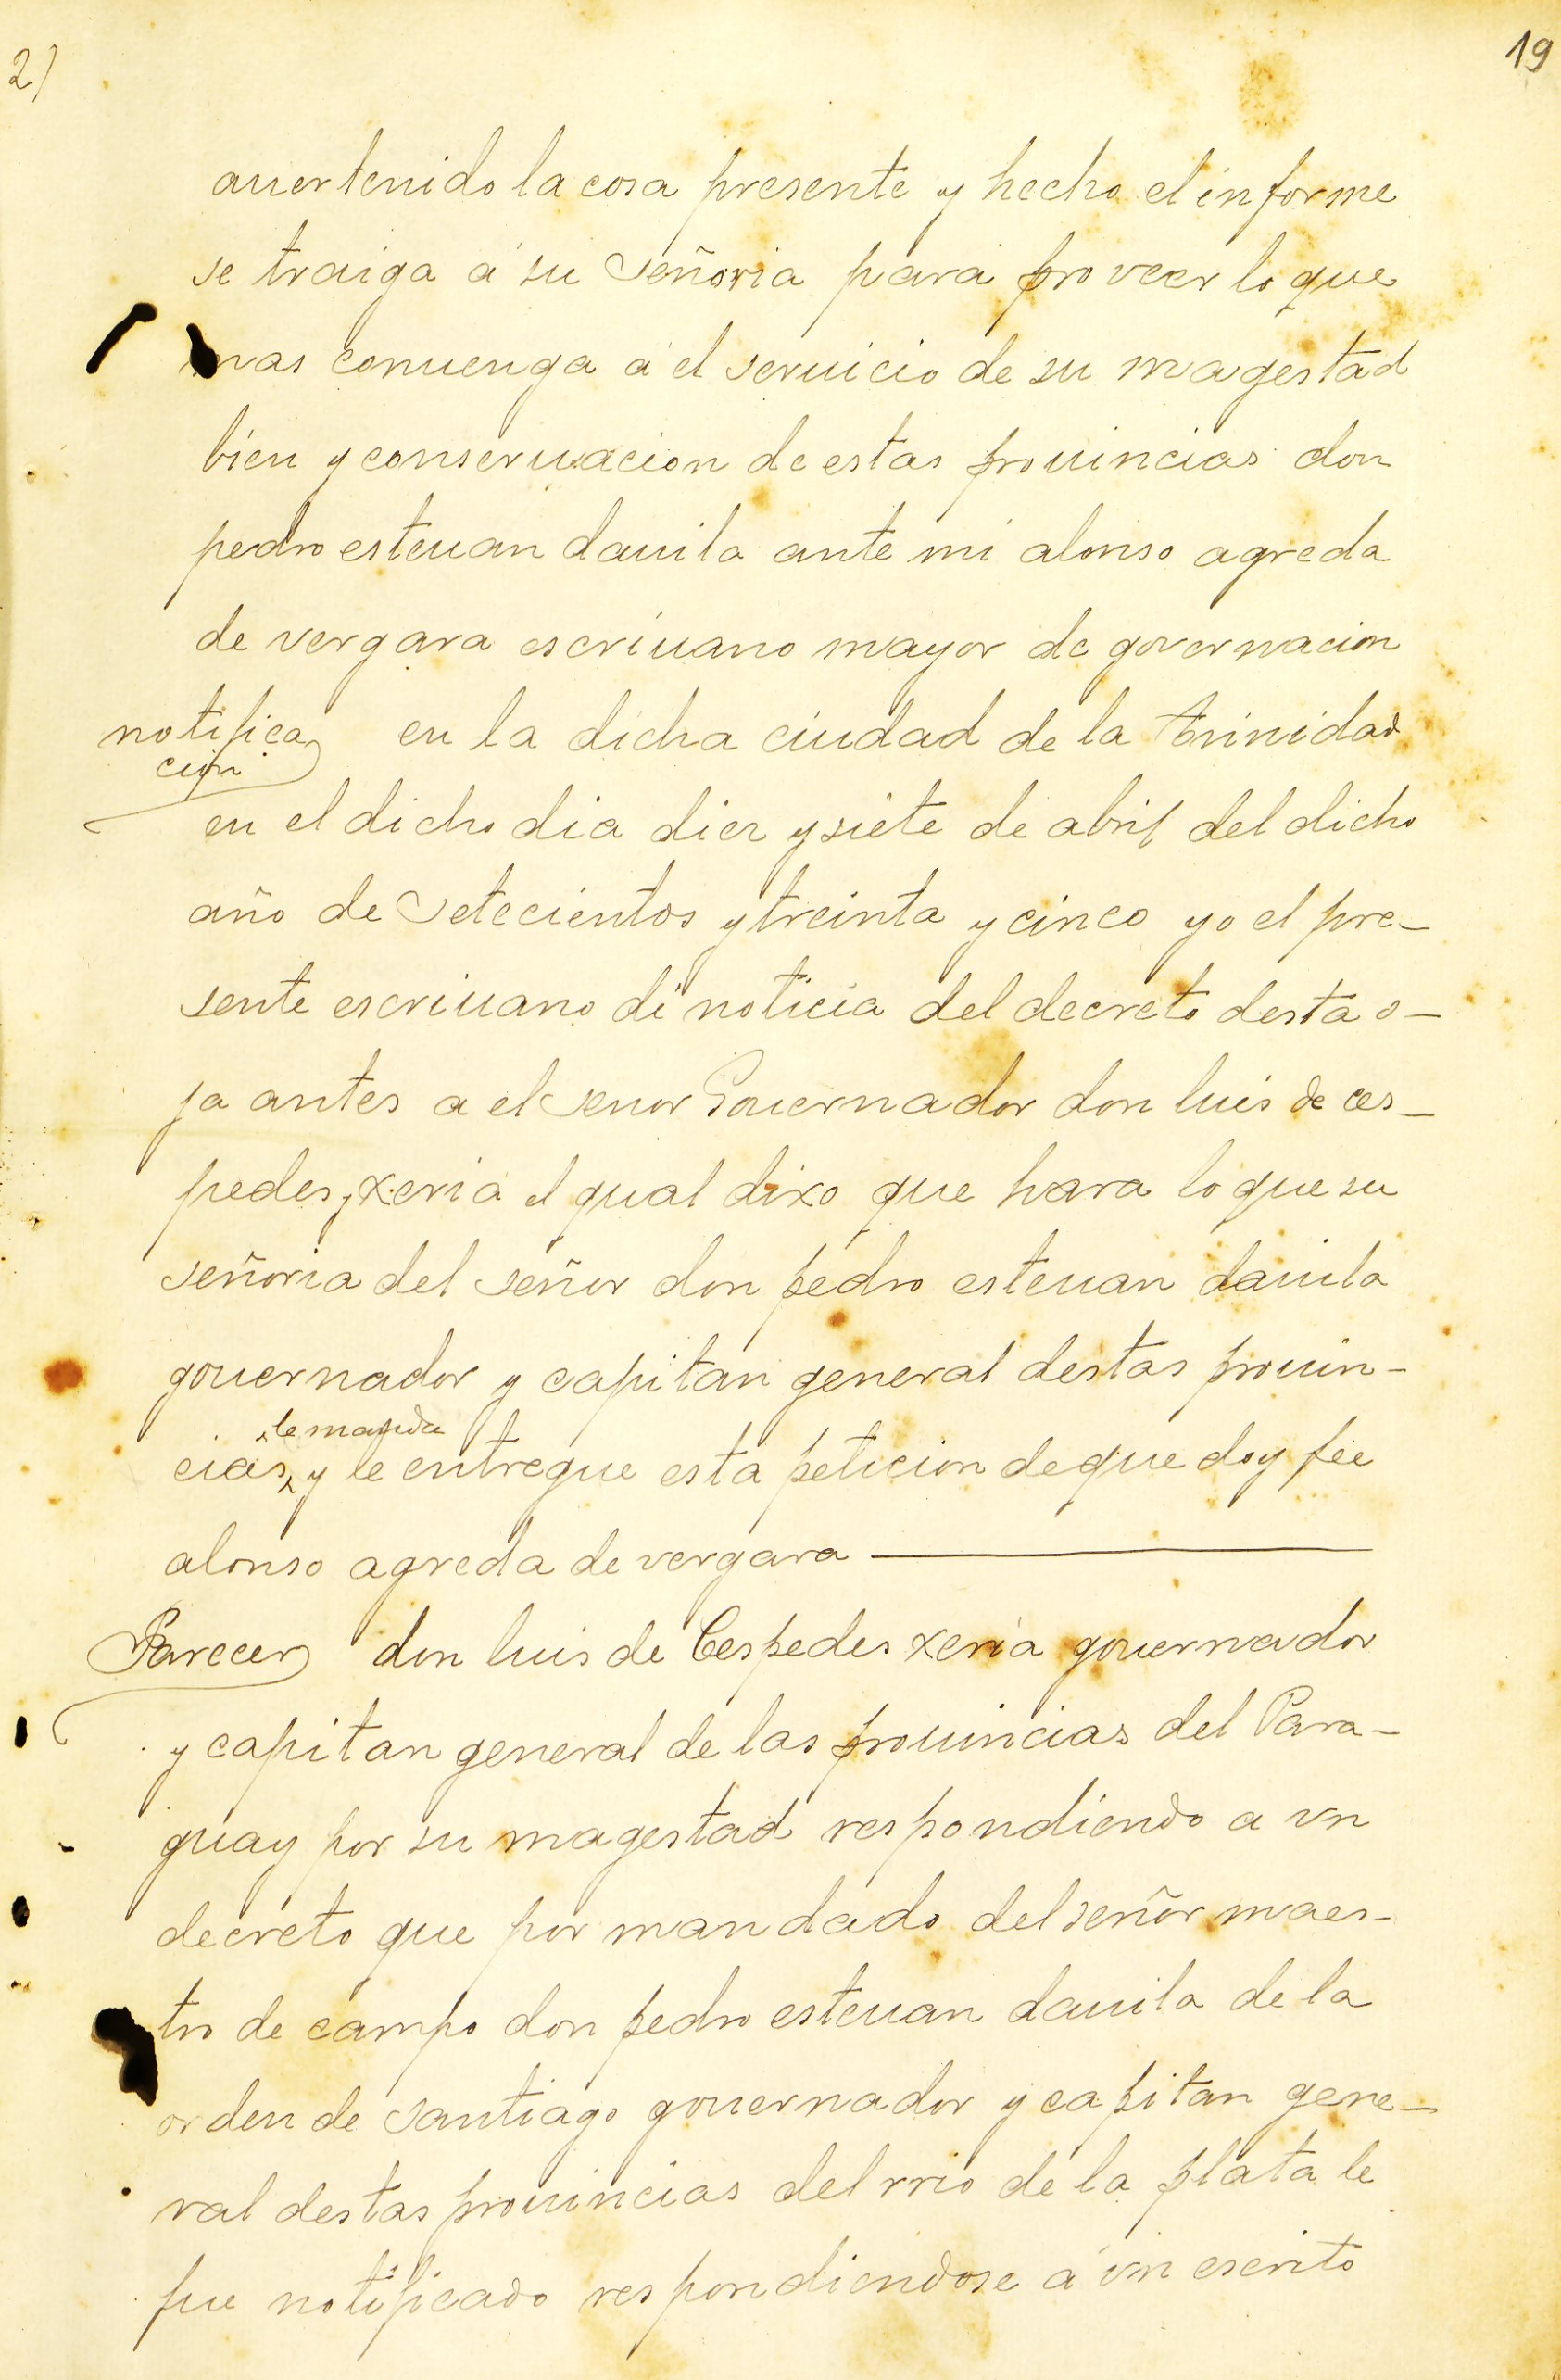 2)
19
auer tenido la cosa presente y hecho el informe
se traiga a su Señoria para proveer lo que
mas conuenga a el seruicio de su magestad
bien y conseruacion de estas prouincias don
pedro esteuan dauila ante mi alonso agreda
de vergara escriuano mayor de governacion
notifica
cion
en la dicha ciudad de la trinidad
en el dicho dia diez y siete de abril del dicho
año de Setecientos y treinta y cinco yo el pre-
sente escriuano di noticia del decreto desta o-
ja antes a el senor Gouernador don luis de ces-
pedes, xeria el qual dixo que hara lo que su
señoria del señor don pedro esteuan dauila
gouernador y capitan general destas prouin-
le manda
cias y le entregue esta peticion de que doy fee
alonso agreda de vergara
Parecer
don luis de Cespedes xeria gouernador
y capitan general de las prouincias del Para-
guay por su magestad respondiendo a vn
decreto que por mandado del señor maes-
tro de campo don pedro esteuan dauila de la
orden de Santiago gouernador y capitan gene-
ral destas prouincias del rrio de la plata le
fue notificado respondiendose a vn escrito